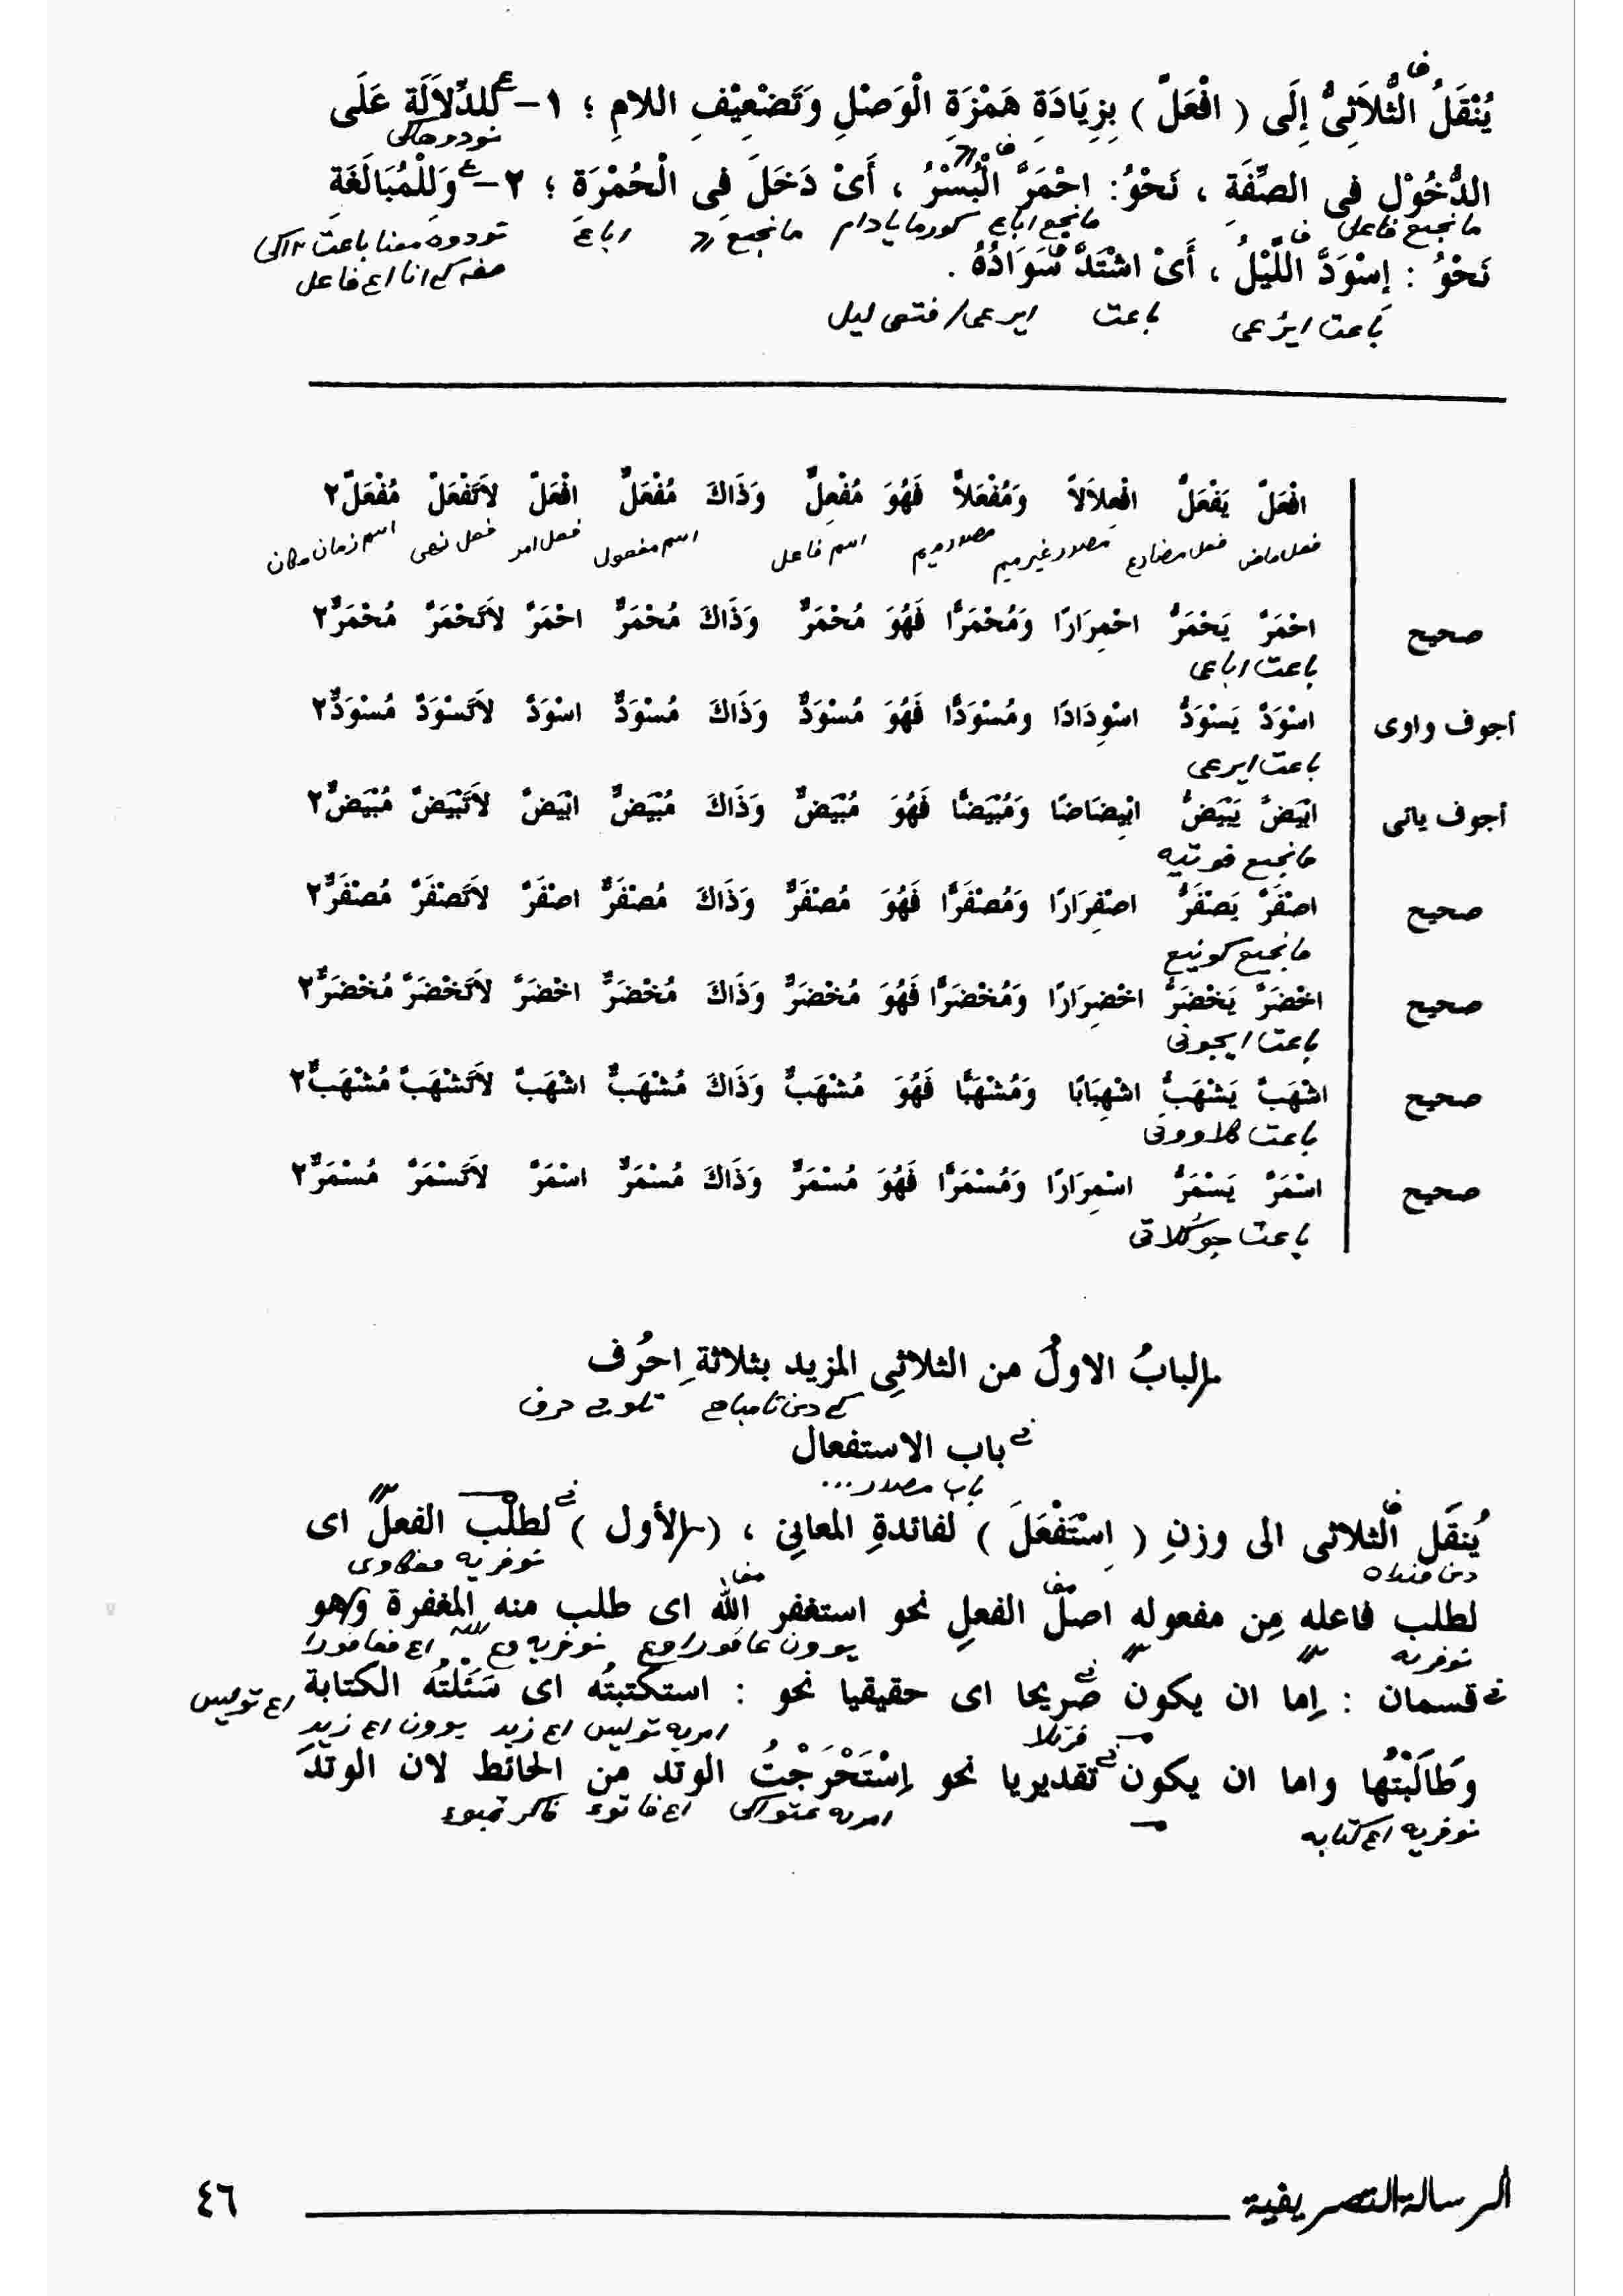 يُنْقَلُ الثُّلاَثِىُّ إِلَى ( افْعَلَّ ) بِزِيَادَةِ هَمْزَةِ الْوَصْلِ وَتَضْعِيْفِ اللامِ ؛ ١- لِلدِّلاَلَةِ عَلَى
الدُّخُوْلِ فِى الصِّفَةِ ، نَحْوُ: احْمَرَّ الْبُسْرُ ، أَىْ دَخَلَ فِى الْحُمْرَةِ ؛ ٢- وَلِلْمُبَالَغَةِ
مانجيع فاعل
نَحْوُ : إِسْوَدَّ اللَّيْلُ ، أَىْ اشْتَدَّ سَوَادُهُ .
باعت ايرعى باعت ايرعى/فتعى ليل
افْعَلَّ يَفْعَلُّ افْعِلاَلاً وَمُفْعَلاًّ فَهُوَ مُفْعِلٌّ وَذَاكَ مُفْعَلٌّ افْعَلَّ لاَتَفْعَلَّ مُفْعَلٌّ٢
فعل ماض فعل مضارع مصدر غير ميم مصدر ميم اسم فاعل اسم مفعول فعل امر فعل نهى اسم زمان مكان
صحيح احْمَرَّ يَحْمَرُّ احْمِرَارًا وَمُحْمَرًّا فَهُوَ مُحْمَرٌّ وَذَاكَ مُحْمَرٌّ احْمَرَّ لاَتَحْمَرَّ مُحْمَرٌّ٢
باعت اباعى
أجوف واوى اسْوَدَّ يَسْوَدُّ اسْوِدَادًا ومُسْوَدًّا فَهُوَ مُسْوَدٌّ وَذَاكَ مُسْوَدٌّ اسْوَدَّ لاَتَسْوَدَّ مُسْوَدٌّ٢
باعت ايرعى
أجوف يائى ابْيَضَّ يَبْيَضُّ ابْيِضَاضًا وَمُبْيَضًّا فَهُوَ مُبْيَضٌّ وَذَاكَ مُبْيَضٌّ ابْيَضَّ لاَتَبْيَضَّ مُبْيَضٌّ٢
مانجيع فوتيه
صحيح اصْفَرَّ يَصْفَرُّ اصْفِرَارًا وَمُصْفَرًّا فَهُوَ مُصْفَرٌّ وَذَاكَ مُصْفَرٌّ اصْفَرَّ لاَتَصْفَرَّ مُصْفَرٌّ٢
مانجيع كونيع
صحيح اخْضَرَّ يَخْضَرُّ اخْضِرَارًا وَمُخْضَرًّا فَهُوَ مُخْضَرٌّ وَذَاكَ مُخْضَرٌّ اخْضَرَّ لاَتَخْضَرَّ مُخْضَرٌّ٢
باعت ايجونى
صحيح اشْهَبَّ يَشْهَبُّ اشْهِبَابًا وَمُشْهَبًّا فَهُوَ مُشْهَبٌّ وَذَاكَ مُشْهَبٌّ اشْهَبَّ لاَتَشْهَبَّ مُشْهَبٌّ٢
باعت كلاوونى
صحيح اسْمَرَّ يَسْمَرُّ اسْمِرَارًا وَمُسْمَرًّا فَهُوَ مُسْمَرٌّ وَذَاكَ مُسْمَرٌّ اسْمَرَّ لاَتَسْمَرَّ مُسْمَرٌّ٢
باعت جوكلاتى
البابُ الاولُ من الثلاثِى المزيد بثلاثة احرُف
باب الاستفعال
باب مصدر...
يُنقَل الثلاثى الى وزنِ ( اِسْتَفْعَلَ ) لفائدةِ المعانِى ، (الأول ) لطلب الفعل اى
لطلب فاعله مِن مفعوله اصلَ الفعلِ نحو استغفر الله اى طلب منه المغفرة وهو
قسمان : اِما ان يكون صريحا اى حقيقيا نحو : استكتبتُه اى سَئَلْتُه الكتابة
وطَالَبْتُها واما ان يكون تقديريا نحو اِسْتَخْرَجْتُ الوتد من الحائط لان الوتدَ
نوفريه اع كتابه
الرسالة التصريفية ٤٦